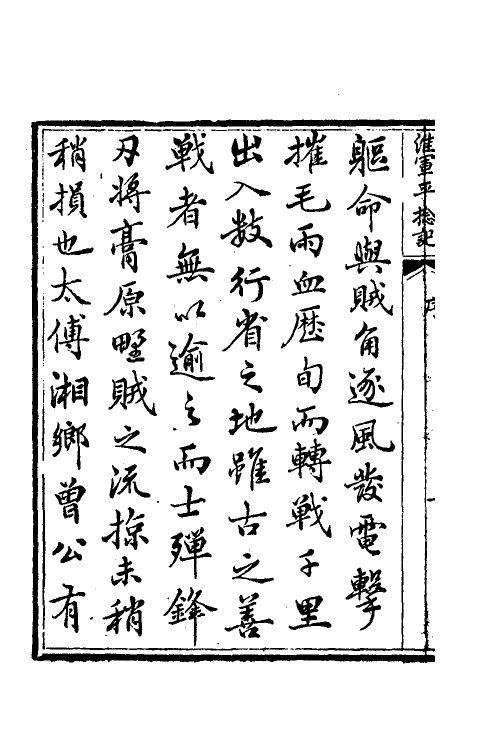 淮軍平捻記
序
軀命與賊角逐風發電擊
摧毛雨血歷旬而轉戰千里
出入数行省之地雖古之善
戰者無以逾之而士殫鋒
刃將膏原野賊之流掠未稍
稍損也太傅湘鄉曾公有